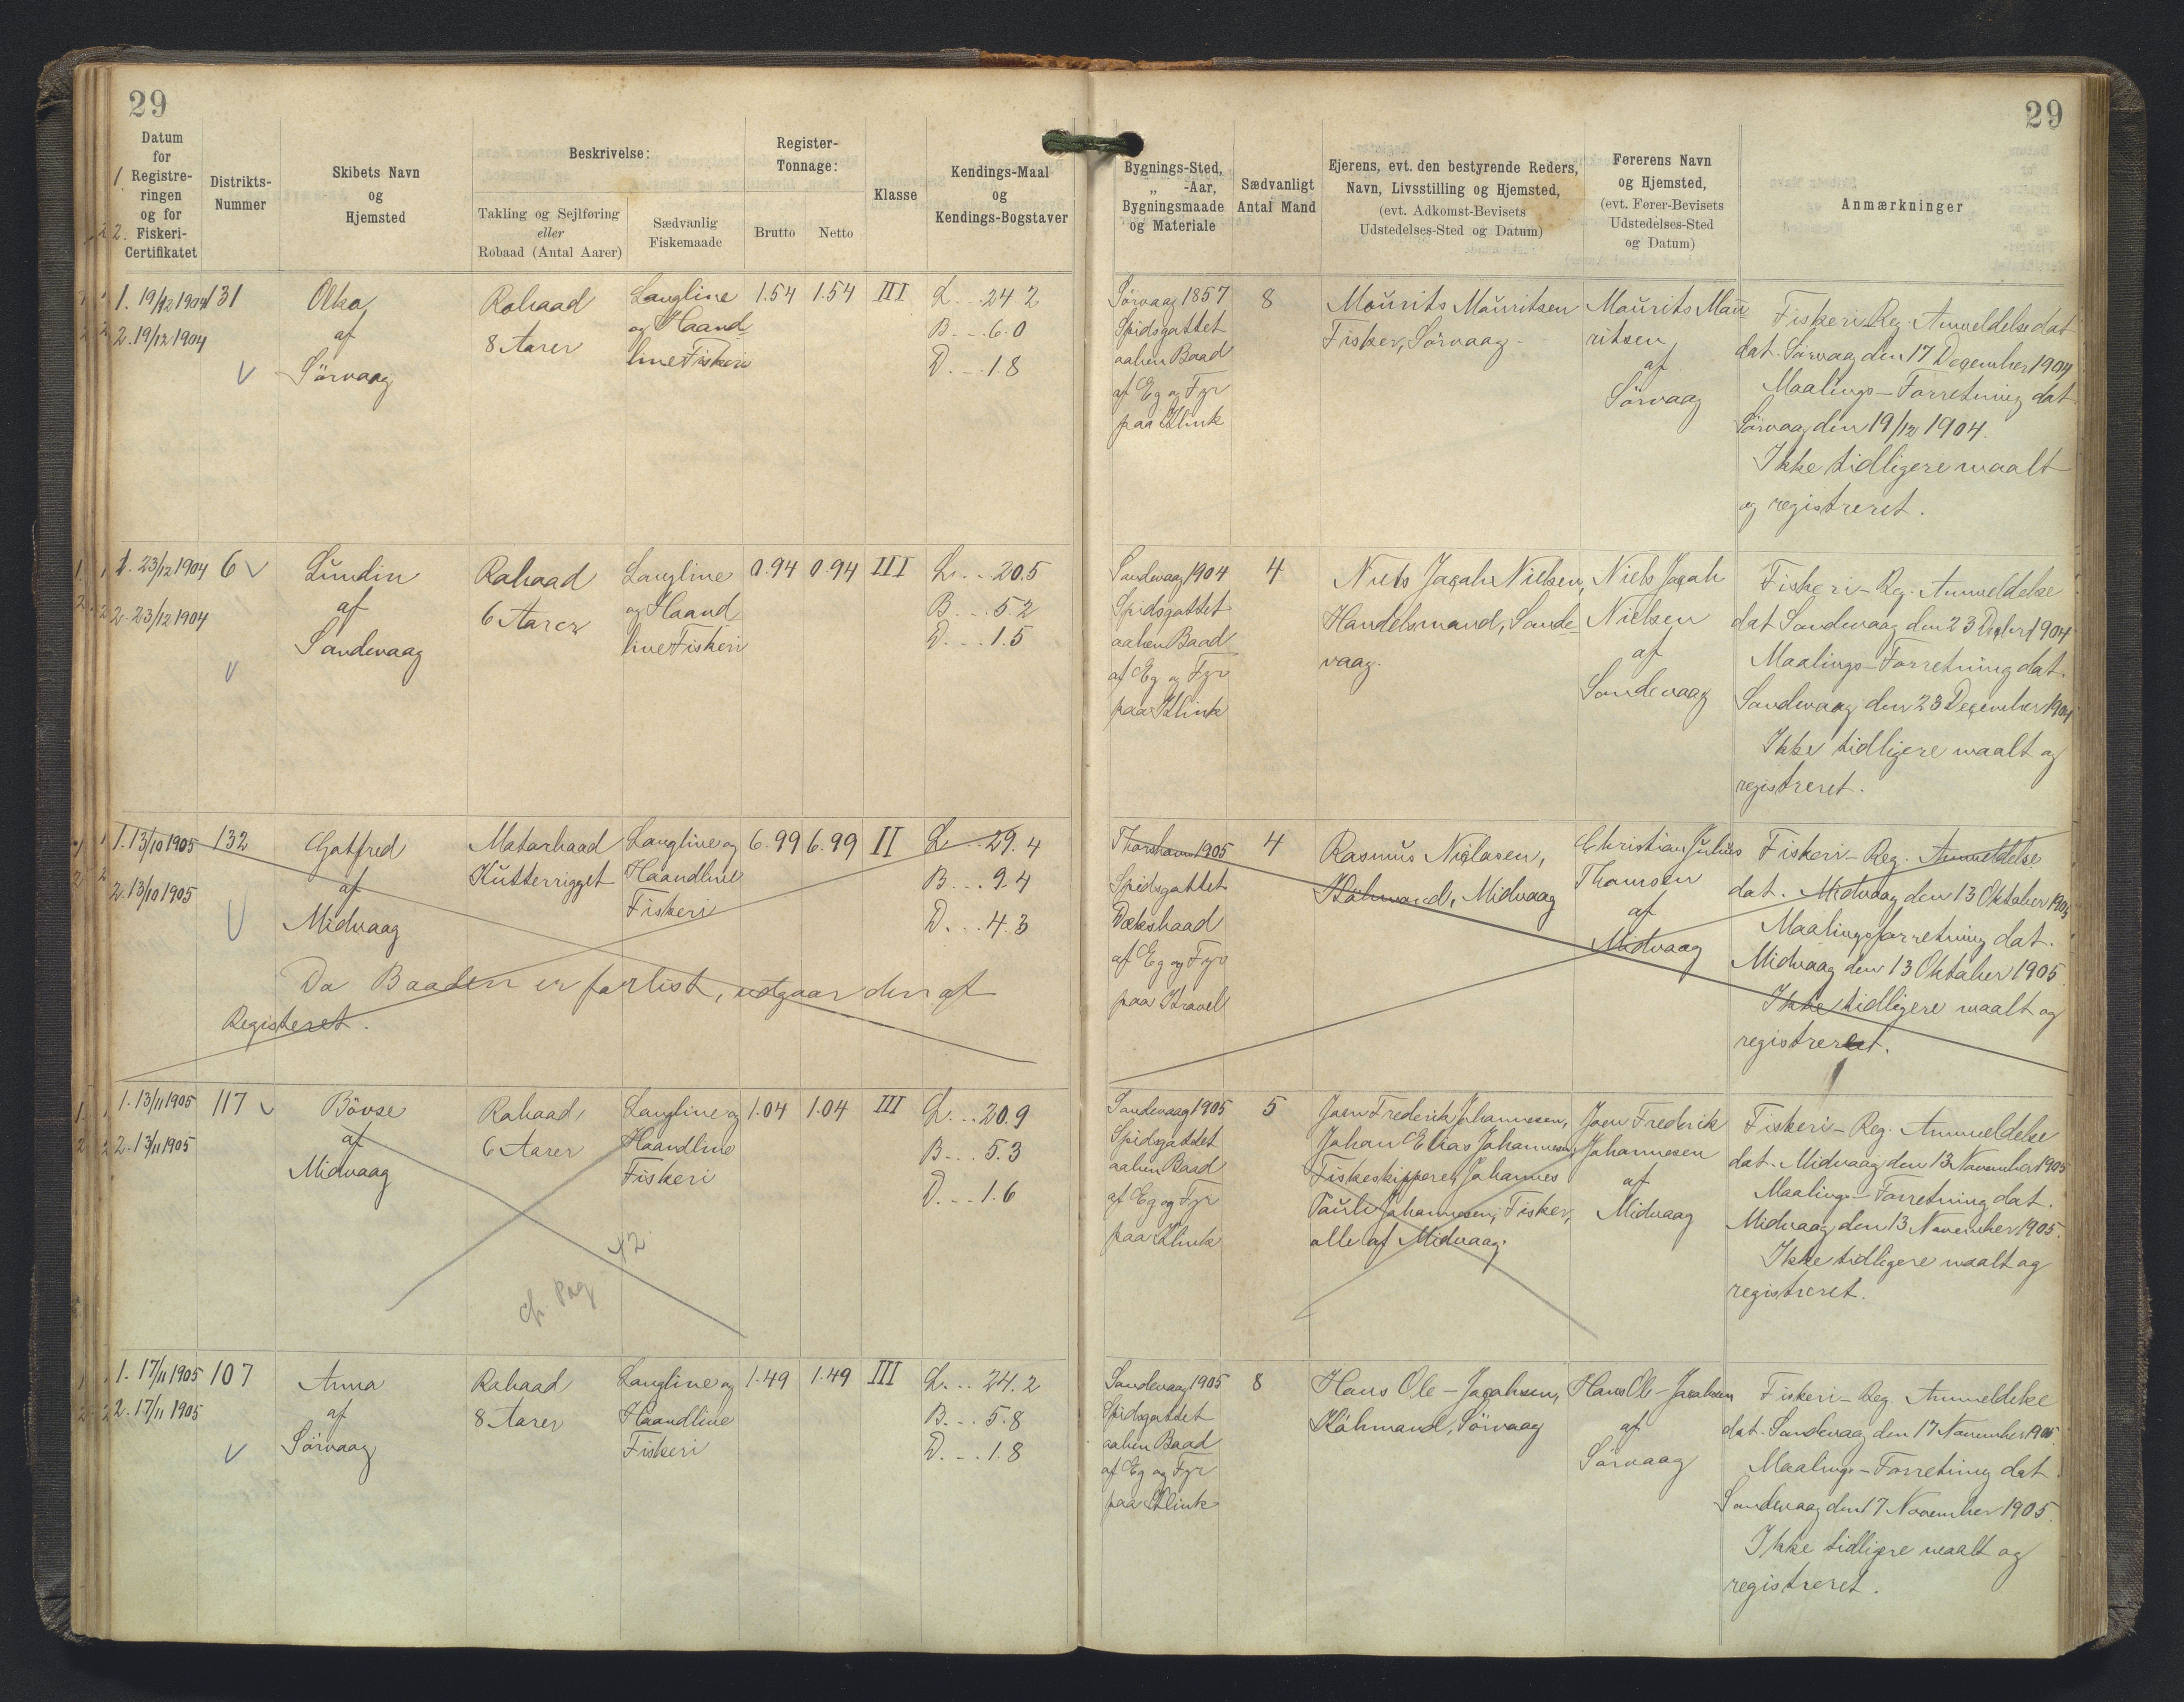 29
29
Datum
for
Registre-
ringen
og for
Fiskeri-
Certifikatet
1.
2.
Distrikts-
Nummer
Skibets Navn
og
Hjemsted
Beskrivelse:
Takling og Sejlføring
eller
Robaad (Antal Aarer)
Sædvanlig
Fiskemaade
Register-
Tonnage:
Brutto
Netto
Klasse
Kendings-Maal
og
Kendings-Bogstaver
Bygnings-Sted,
„ -Aar,
Bygningsmaade
og Materiale
Sædvanligt
Antal Mand
Ejerens, evt. den bestyrende Reders,
Navn, Livsstilling og Hjemsted,
(evt. Adkomst-Bevisets
Udstedelses-Sted og Datum)
Førerens Navn
og Hjemsted,
(evt. Fører-Bevisets
Udstedelses-Sted
og Datum)
Anmærkninger
1. 19/12 1904
2. 19/12 1904
131
Olka
af
Sörvaag
Robaad
8 Aarer
Langline
og Haand
line Fiskeri
1.54
1.54
III
L. . . 24.2
B. . . 6.0
D. . . 1.8
Sörvaag 1857
Spidsgattet
aaben Baad
af Eg og Fyr
paa Klink
8
Maurits Mauritsen
Fisker, Sörvaag.
Maurits Mau
ritsen
af
Sörvaag
Fiskeri-Reg. Anmeldelse dat
dat. Sörvaag den 17 December 1904
Maalings-Forretning dat
Sörvaag den 19/12 1904.
Ikke tidligere maalt
og registreret.
1. 23/12 1904
2. 23/12 1904
6
Lundin
af
Sandevaag
Robaad
6 Aarer
Langline
og Haand
line Fiskeri
0.94
0.94
III
L. . . 20.5
B. . . 5.2
D. . . 1.5
Sandevaag 1904
Spidsgattet
aaben Baad
af Eg og Fyr
paa Klink
4
Niels Jacob Nielsen,
Handelsmand, Sande
vaag.
Niels Jacob
Nielsen
af
Sandevaag
Fiskeri-Reg. Anmeldelse
dat Sandevaag den 23 Decbr 1904
Maalings-Forretning dat.
Sandevaag den 23 December 1904
Ikke tidligere maalt og
registreret.
1. 13/10 1905
2. 13/10 1905
132
Gotfred
af
Midvaag
Motorbaad
Kutterrigget
Langline og
Haandline
Fiskeri
6.99
6.99
II
L. . . 29.4
B. . . 9.4
D. . . 4.3
Da Baaden er forlist, udgaar den af
Registeret.
Thorshavn 1905
Spidsgattet
Dæksbaad
af Eg og Fyr
paa Kravel
4
Rasmus Niclasen,
Købmand, Midvaag
Christian Julius
Thomsen
af
Midvaag
Fiskeri-Reg. Anmeldelse
dat. Midvaag den 13 Oktober 1905
Maalingsforretning dat.
Midvaag den 13 Oktober 1905
Ikke tidligere maalt og
registreret.
1. 13/11 1905
2. 13/11 1905
117
Bövse
af
Midvaag
Robaad,
6 Aarer
Langline og
Haandline
Fiskeri
1.04
1.04
III
L. . . 20.9
B. . . 5.3
D. . . 1.6
Sandevaag 1905
Spidsgattet
aaben Baad
af Eg og Fyr
paa Klink
5
Joen Frederik Johannesen,
Johan Elias Johannesen,
Fiskeskippere, Johannes
Pauli Johannesen, Fisker,
alle af Midvaag.
Joen Frederik
Johannesen
af
Midvaag
Fiskeri-Reg. Anmeldelse
dat. Midvaag den 13 November 1905
Maalings-Forretning dat.
Midvaag den 13 November 1905.
Ikke tidligere maalt og
registreret.
1. 17/11 1905
2. 17/11 1905
107
Anna
af
Sörvaag
Robaad
8 Aarer
Langline og
Haandline
Fiskeri
1.49
1.49
III
L. . . 24.2
B. . . 5.8
D. . . 1.8
Sandevaag 1905
Spidsgattet
aaben Baad
af Eg og Fyr
paa Klink
8
Hans Ole-Jacobsen,
Kóbmand, Sörvaag
Hans Ole-Jacobsen
af
Sörvaag
Fiskeri-Reg. Anmeldelse
dat. Sandevaag den 17 November 1905.
Maalings-Forretning dat
Sandevaag den 17 November 1905.
Ikke tidligere maalt og
registreret.